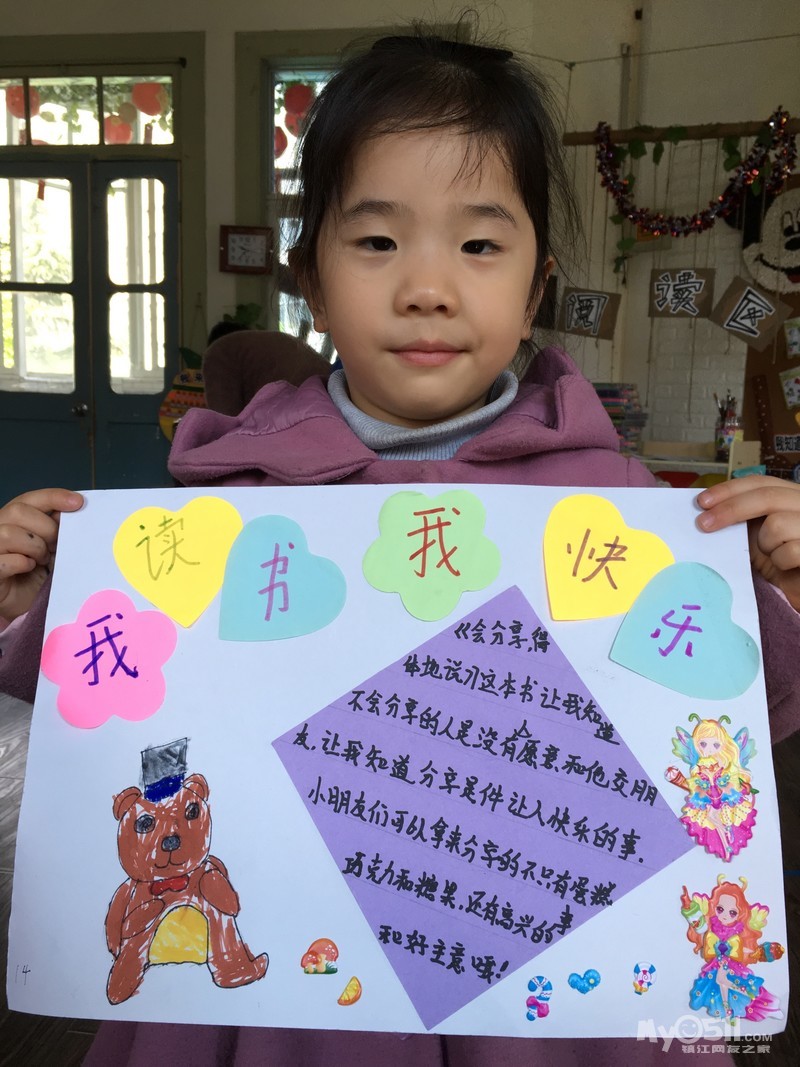 阅读区
我读书我快乐
《会分享,得
体地说》这本书让我知道
不会分享的人是没有人愿意和他交朋
友,让我知道分享是件让人快乐的事.
小朋友们可以拿来分享的不只有蛋糕
巧克力和糖果,还有高兴的事
和好主意哦!
14
My0511.com
镇江网友之家